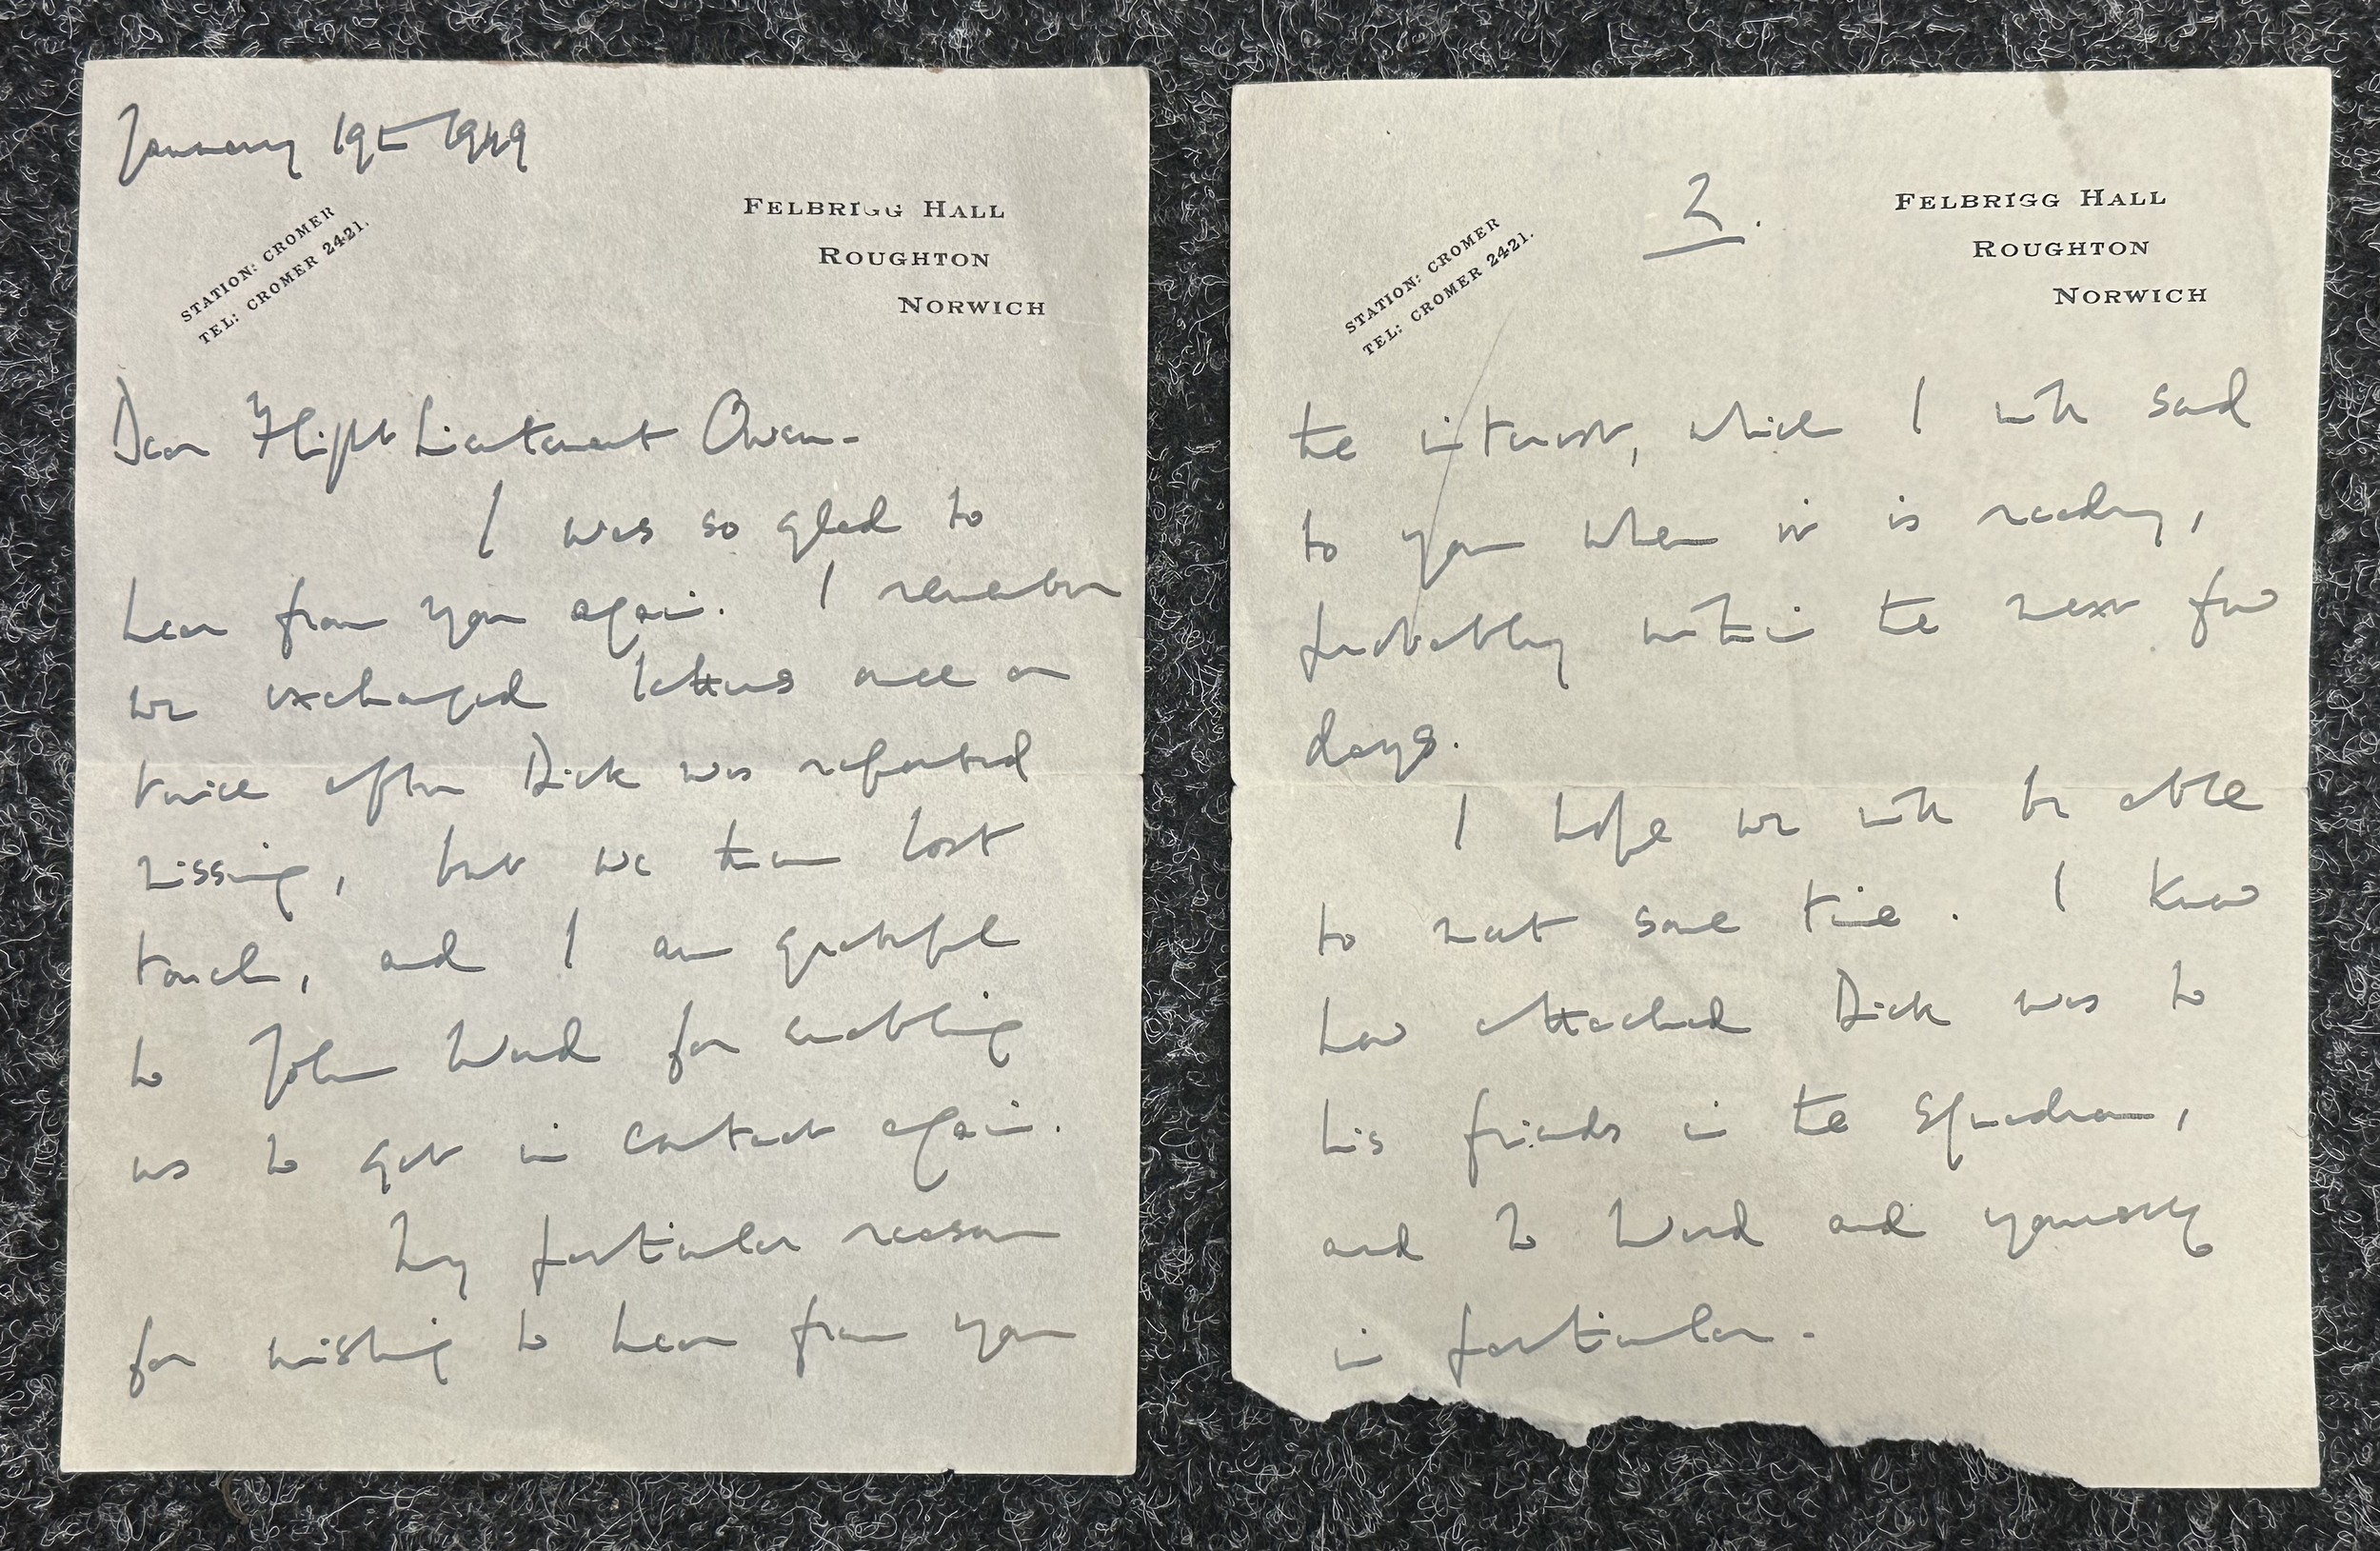 January 19th 1949
STATION: CROMER
TEL: CROMER 2421.
FELBRIGG HALL
ROUGHTON
NORWICH
Dear Flight Lieutenant Owen -
I was so glad to
hear from you again. I remember
we exchanged letters once or
twice after Dick was reported
missing, but we then lost
touch, and I am grateful
to John Wood for enabling
us to get in contact again.
My particular reason
for wishing to hear from you
2.
STATION: CROMER
TEL: CROMER 2421.
FELBRIGG HALL
ROUGHTON
NORWICH
the interest, which I will send
to you when it is ready,
probably within the next few
days.
I hope we will be able
to meet some time. I know
how attached Dick was to
his friends in the Squadron,
and to Wood and yourself
in particular.